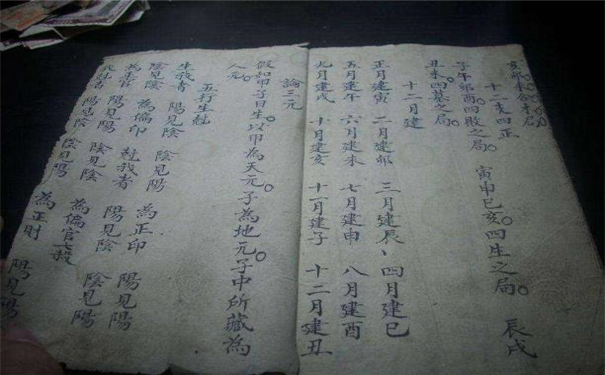 亥卯未合木局
十二支四正
子午卯酉四敗之局。寅申巳亥。四生之局。 辰戌
丑未四墓之局。
十二月建
正月建寅 二月建卯 三月建辰、四月建巳
五月建午 六月建未 七月建申 八月建酉
九月建戌 十月建亥 十一月建子 十二月建丑
論三元
假如甲子日生。以甲為天元。子為地元。子中所藏為
人元。
五行生尅
生我者 陽見陰 陰見陽 為正印 陽見陽
陰見陰 為偏印 尅我者 陽見陰 陰見陽
為正官 陽見陽 陰見陰 為偏官七殺
尅者 陽見陰 陰見陽 為正財 陽見陽